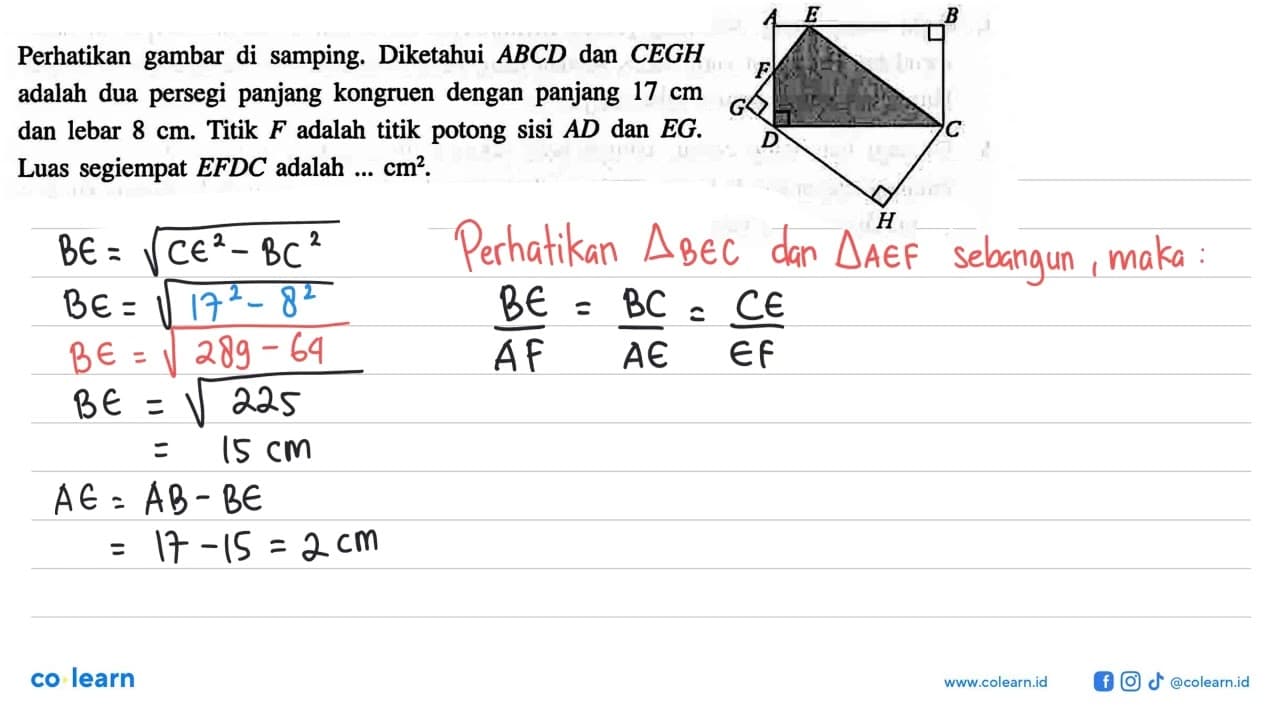 Perhatikan gambar di samping. Diketahui ABCD dan CEGH
adalah dua persegi panjang kongruen dengan panjang 17 cm
dan lebar 8 cm. Titik F adalah titik potong sisi AD dan EG.
Luas segiempat EFDC adalah ... cm².
A E B
F
G
D C
H
BE = √CE² - BC²
BE = √17² - 8²
BE = √289 - 64
BE = √225
= 15 cm
AE = AB - BE
= 17 - 15 = 2 cm
Perhatikan ΔBEC dan ΔAEF sebangun, maka :
BE/AF = BC/AE = CE/EF
co learn
www.colearn.id
@colearn.id